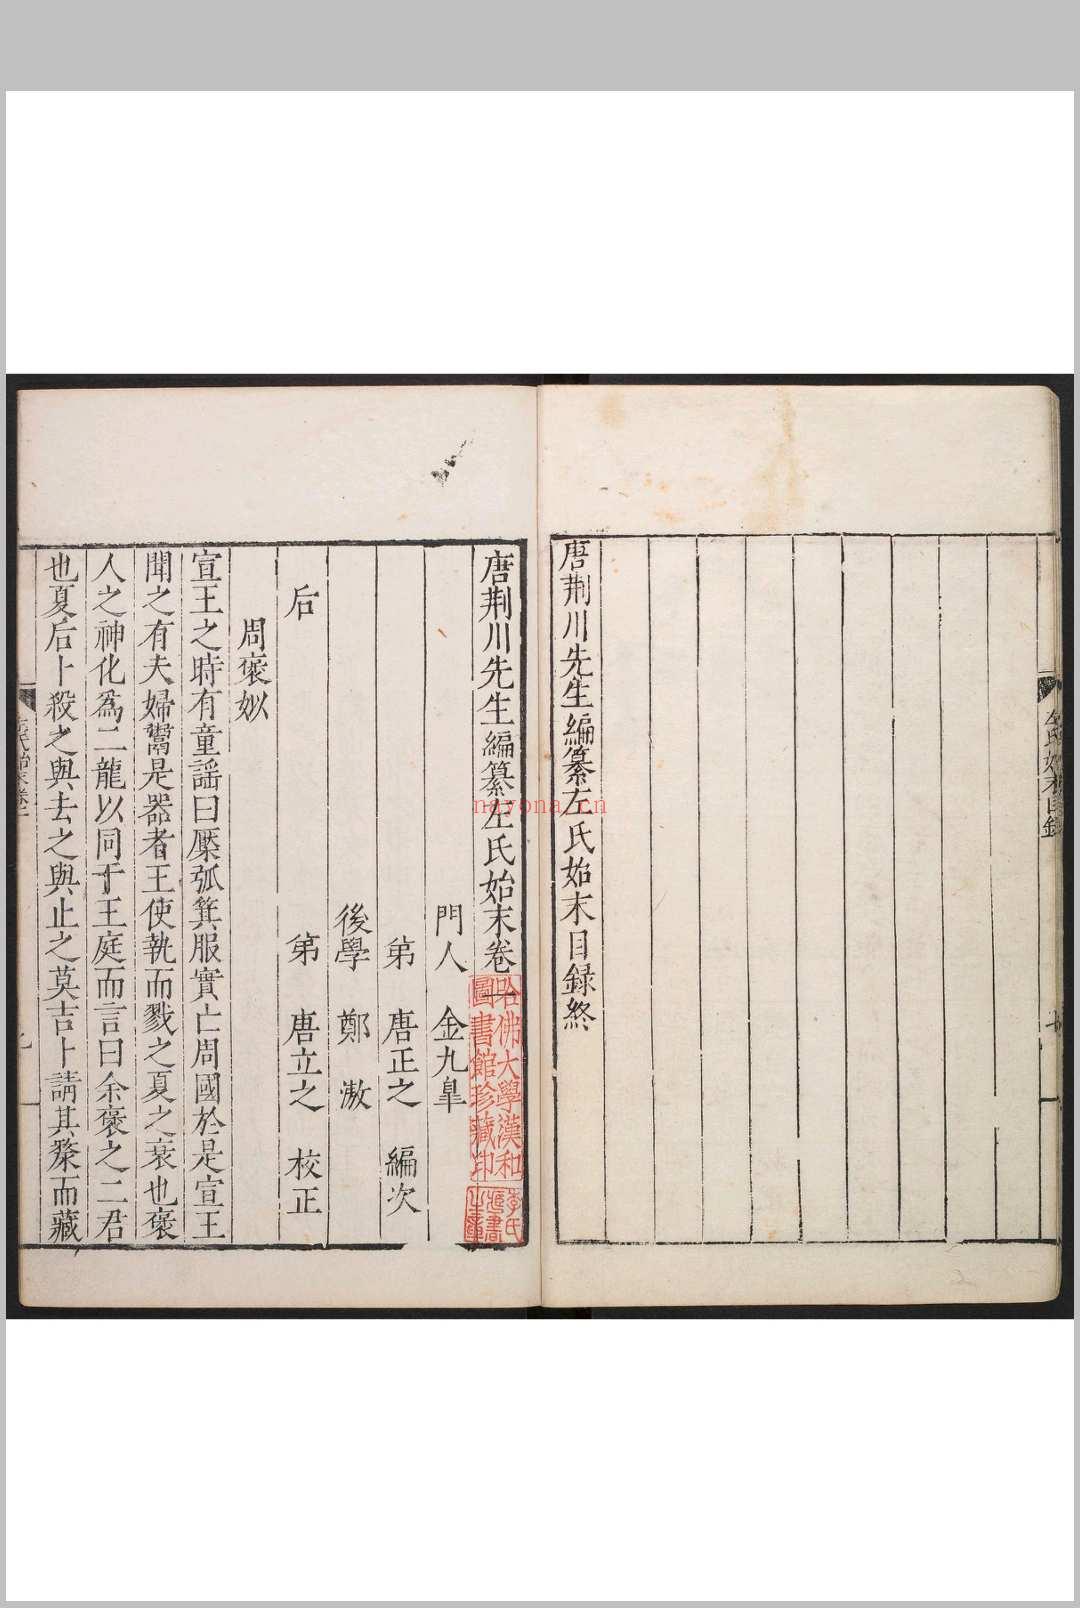 唐荆川先生編纂左氏始末目録終
唐荆川先生編纂左氏始末卷
門人 金九臯
弟 唐正之 編次
後學 鄭 漖
弟 唐立之 校正
后
周褒姒
宣王之時有童謡曰檿弧箕服實亡周國於是宣王
聞之有夫婦鬻是器者王使執而戮之夏之衰也褒
人之神化爲二龍以同于王庭而言曰余褒之二君
也夏后卜殺之與去之與止之莫吉卜請其漦而藏
哈佛大學漢和
圖書館珍藏印
nayona.cn
左氏始末目録